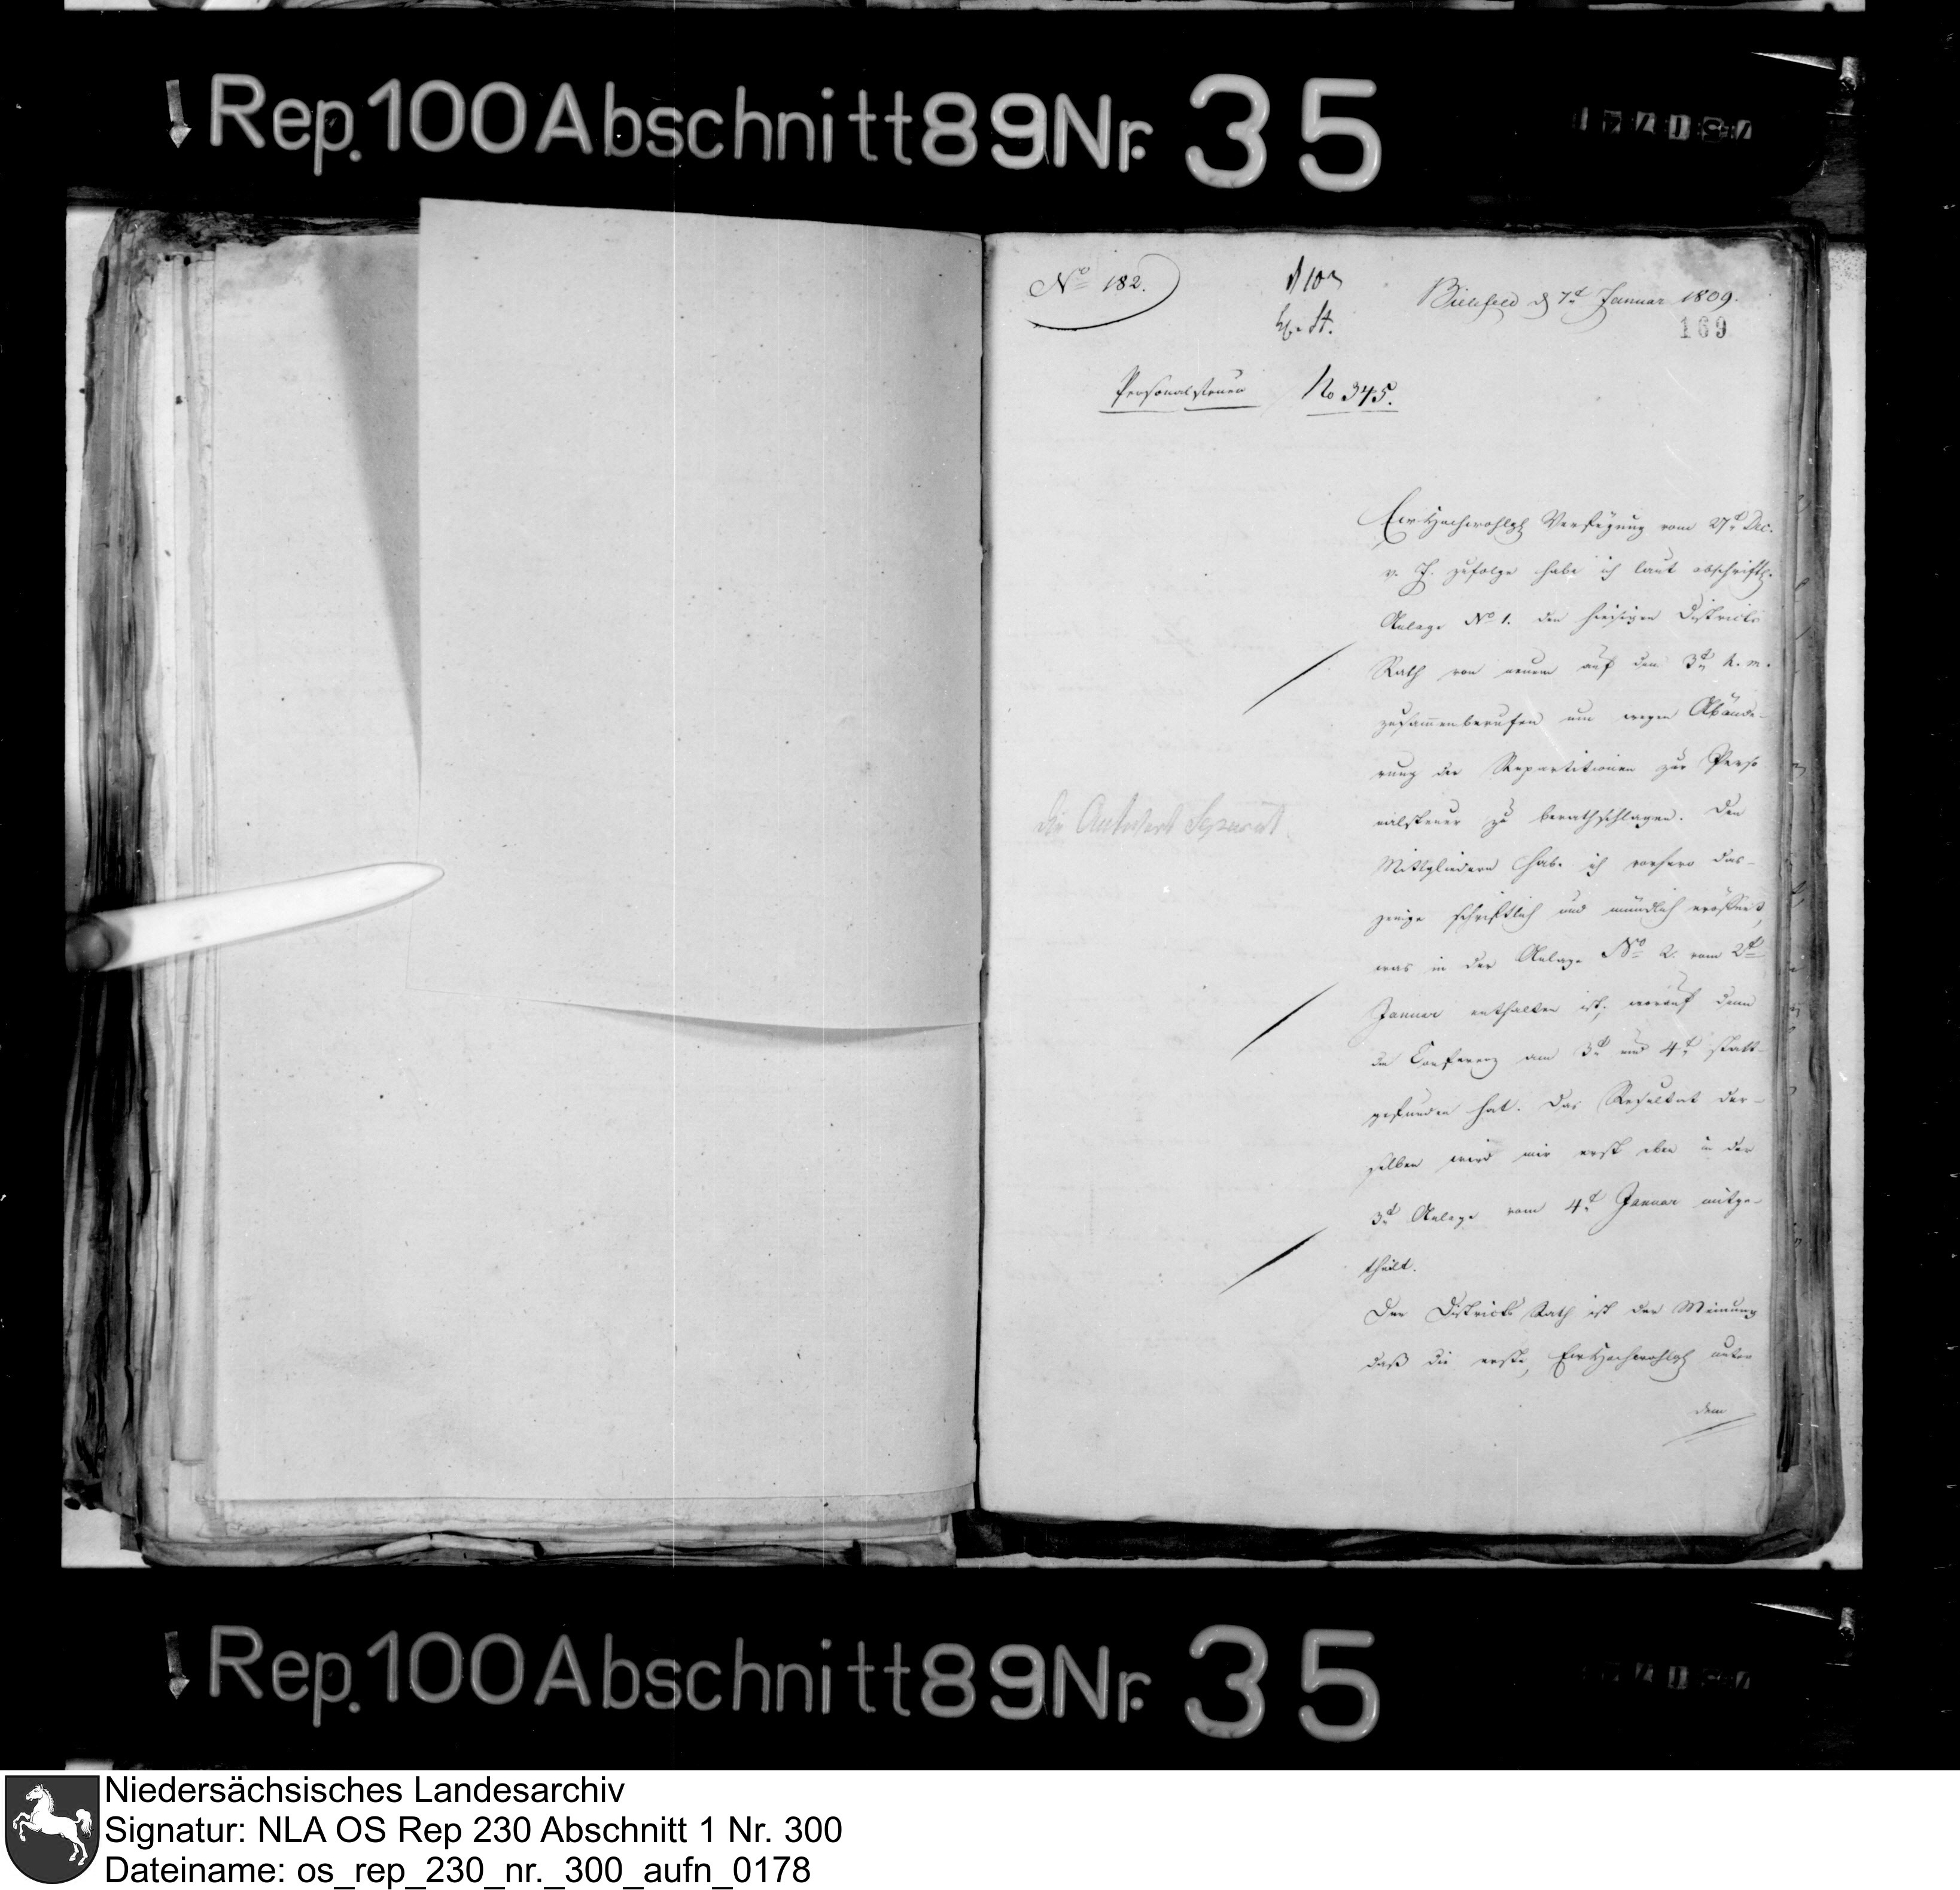 Rep. 100 Abschnitt 89 Nr. 35
No 182.
Bielefeld d 7t Januar 1809.
169
Personalsteuer
No 345.
Ew Hochwohlgb Verfügung vom 27t Dec.
v. J. zufolge habe ich laut abschriftl.
Anlage No 1. den hiesigen Districts
Rath von neuem auf den 3t h. m.
zusammenberufen um wegen Abände-
rung der Repartitionen zur Perso
nalsteuer zu berathschlagen. Den
Mitgliedern habe ich vorhero das-
jenige schriftlich und mündlich eröffnet,
was in der Anlage No 2. vom 2t
Januar enthalten ist, worauf denn
die Conferenz am 3t und 4t statt-
gefunden hat. Das Resultat der-
selben wird mir erst eben in der
3t Anlage vom 4t Januar mitge-
theilt.
Der Districts Rath ist der Meinung
daß die erste, Ew Hochwohlgb unter
dem
die Antwort Separat.
Rep. 100 Abschnitt 89 Nr. 35
Niedersächsisches Landesarchiv
Signatur: NLA OS Rep 230 Abschnitt 1 Nr. 300
Dateiname: os_rep_230_nr._300_aufn_0178